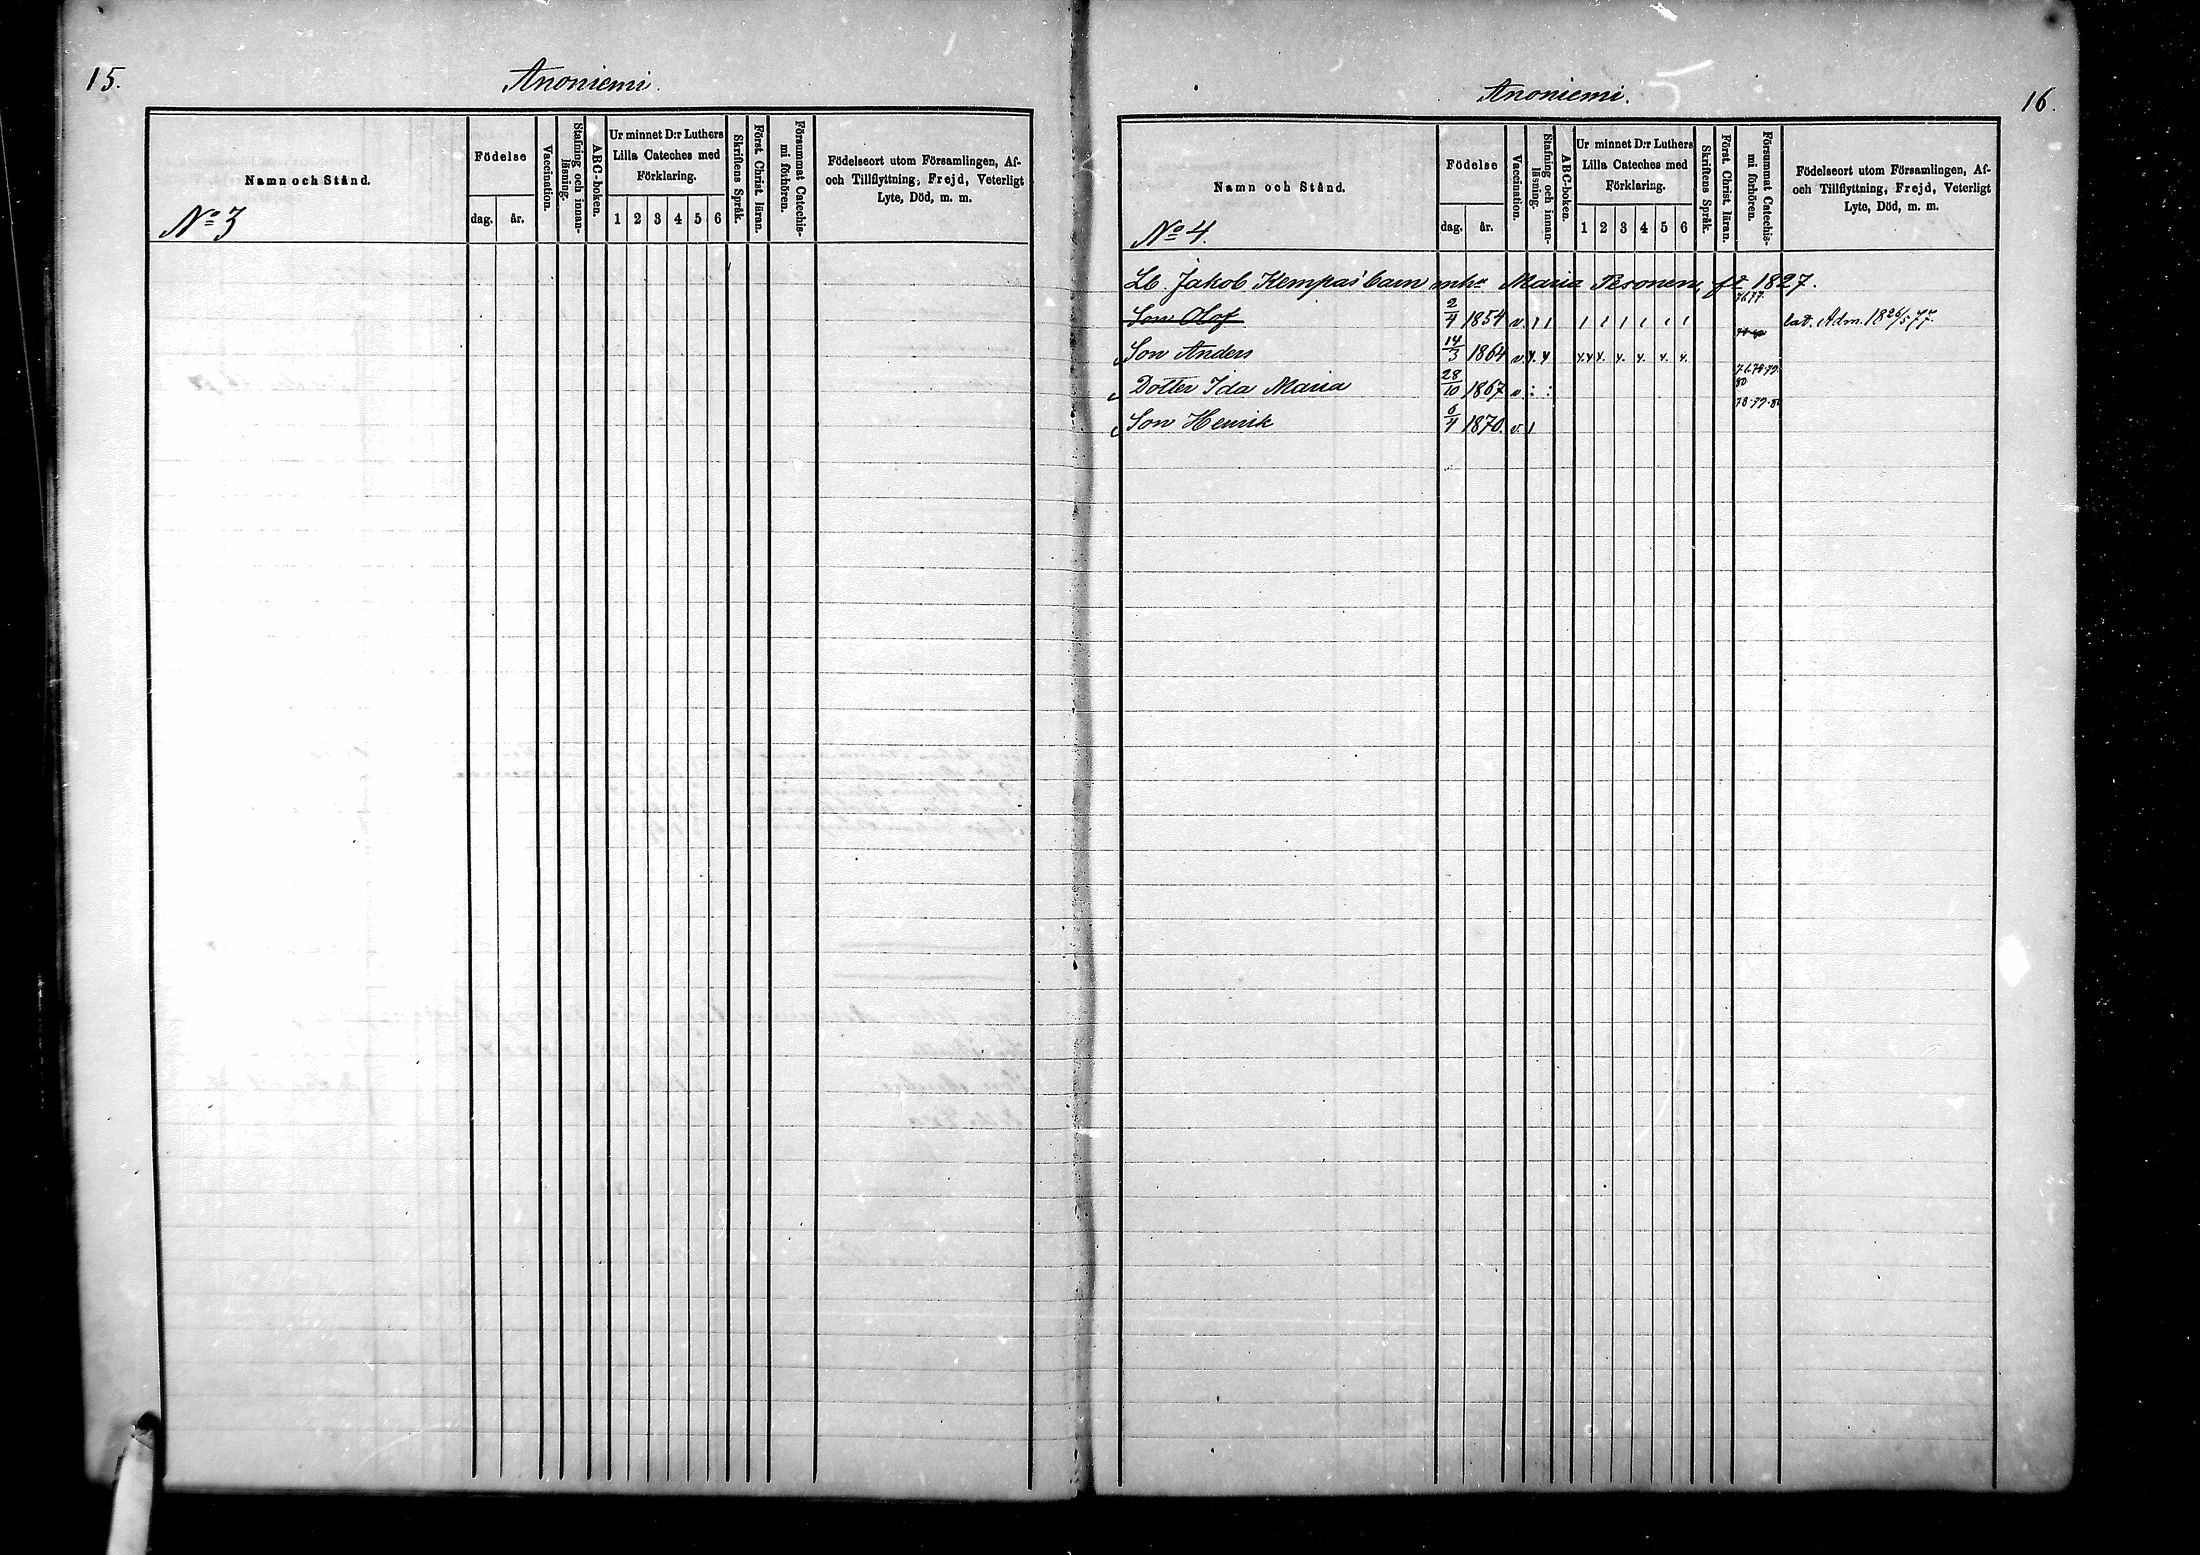 15.
Anoniemi.
Namn och Stånd.
Födelse
dag.
år.
Vaccination.
Stafning och innan-
läsning.
ABC-boken.
Ur minnet D:r Luthers
Lilla Cateches med
Förklaring.
1 2 3 4 5 6
Skriftens Språk.
Först. Christ. läran.
Försummat Catechis-
mi förhören.
Födelseort utom Församlingen, Af-
och Tillflyttning, Frejd, Veterligt
Lyte, Död, m. m.
No 3
Anoniemi.
16.
Namn och Stånd.
Födelse
dag.
år.
Vaccination.
Stafning och innan-
läsning.
ABC-boken.
Ur minnet D:r Luthers
Lilla Cateches med
Förklaring.
1 2 3 4 5 6
Skriftens Språk.
Först. Christ. läran.
Försummat Catechis-
mi förhören.
Födelseort utom Församlingen, Af-
och Tillflyttning, Frejd, Veterligt
Lyte, Död, m. m.
No 4.
Lb. Jakob Kempas' barn Maria Pesonen, 1827.
Son Olof 2/4 1854 v. 76.77. Adm. 18 26/5 77.
Son Anders 14/3 1864 v.
Dotter Ida Maria 28/10 1867 v 76.78.79. 80
Son Henrik 6/4 1870. v. 78.79.80